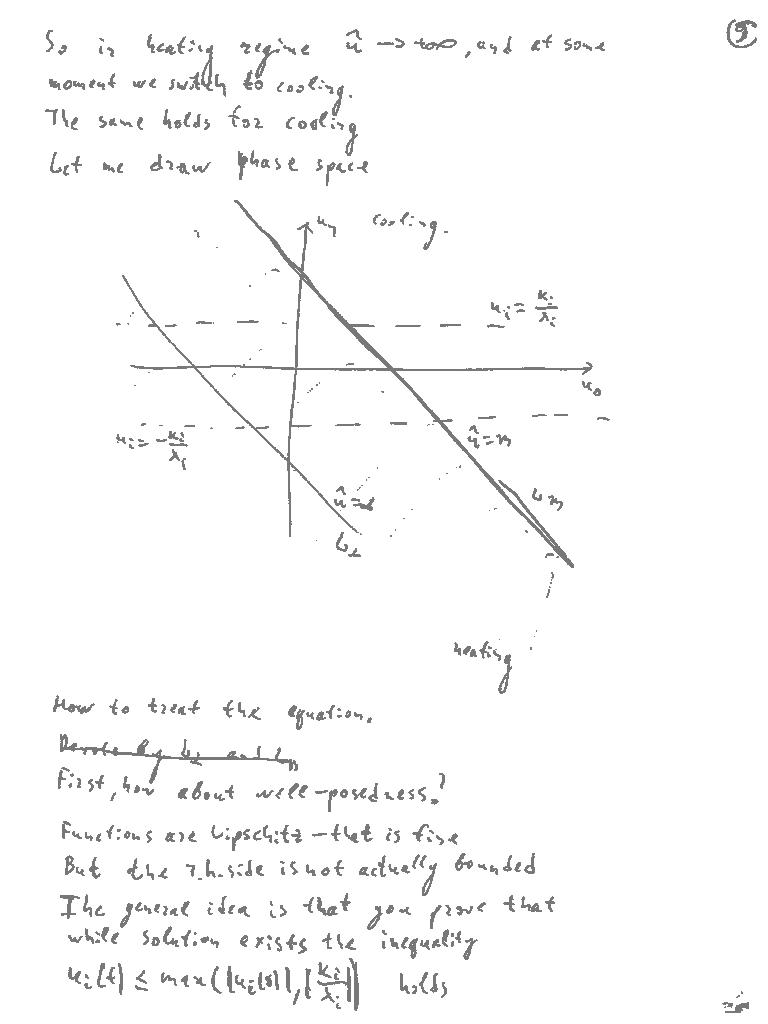 ⑨
So in heating regime û → +∞, and at some
moment we switch to cooling.
The same holds for cooling
Let me draw phase space
cooling.
u_i = K_i/λ_i
u_0
u_i = -K_i/λ_i
û=α
heating
How to treat the equation.
First, how about well-posedness?
Functions are Lipschitz - that is fine
But the r.h.side is not actually bounded
The general idea is that you prove that
while solution exists the inequality
u_i(t) ≤ max(|u_i(0)|, |K_i/λ_i|) holds